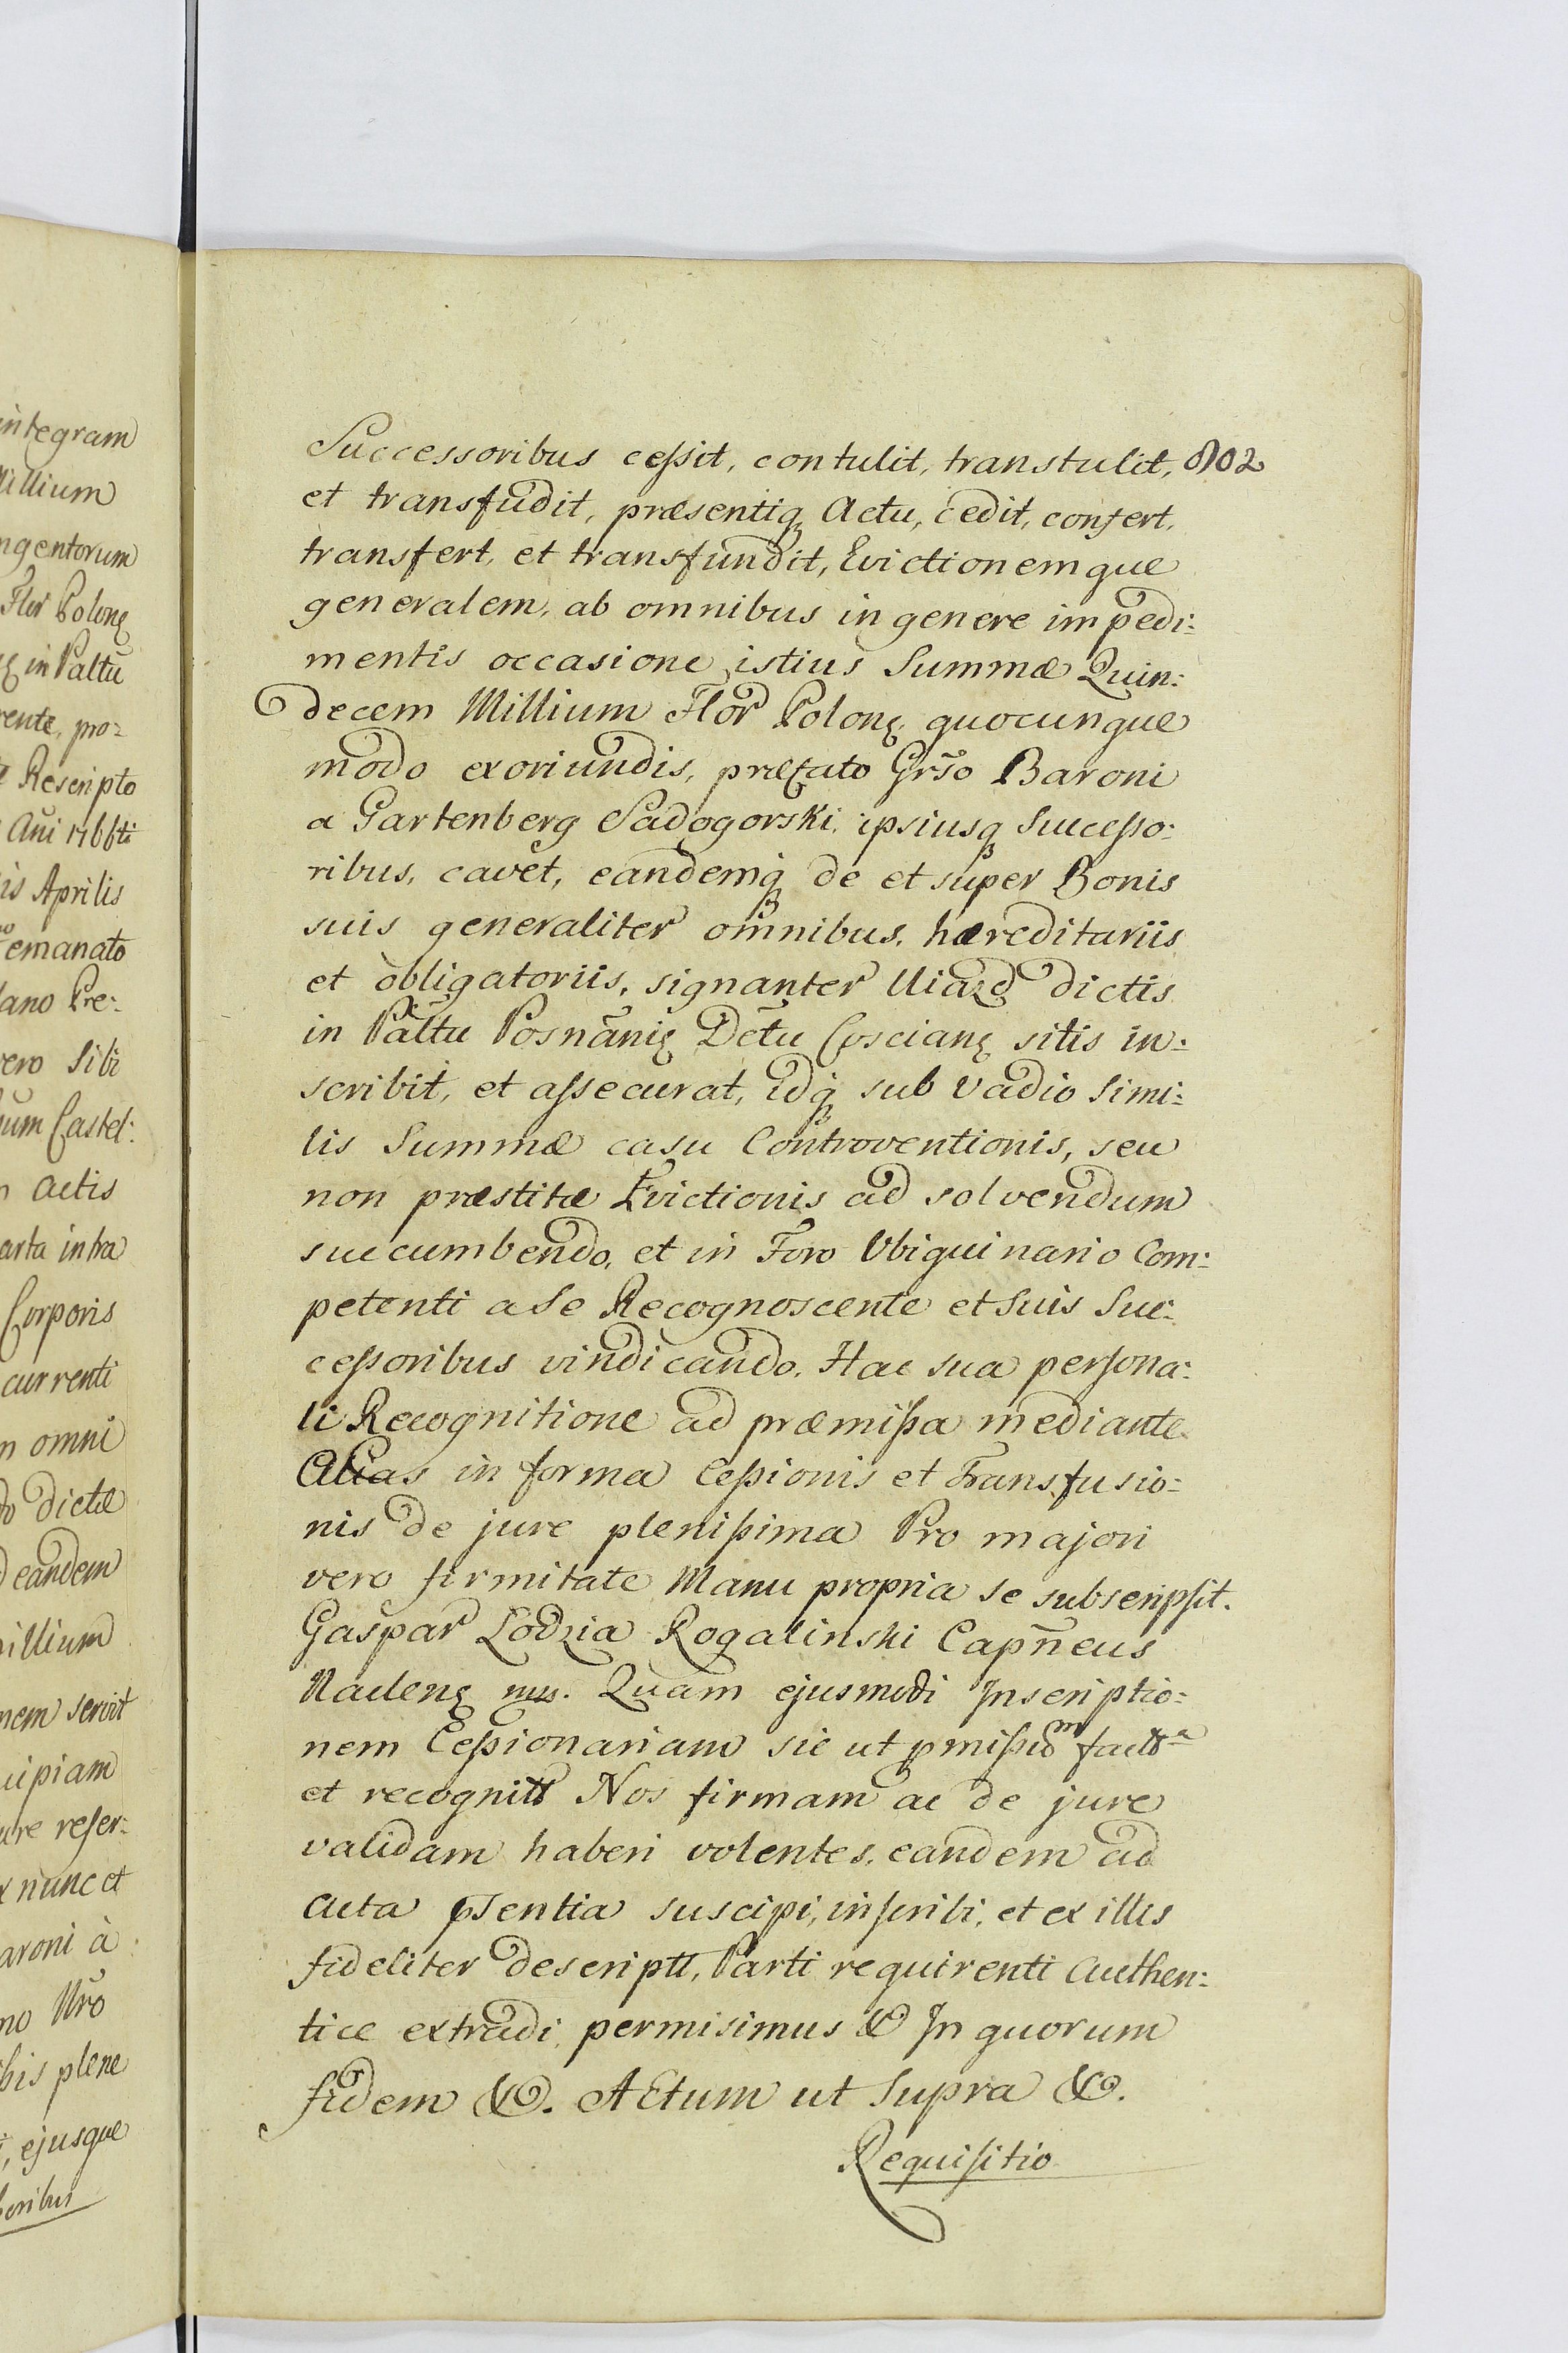 integram
illium
ngentorum
Flor Polonę
in Palťu
rente, pro:
Rescripto
Aprilis
emanato
lano Pre:
vero Sibi
um Castel:
Actis
arta intra
Corporis
currenti
omni
dictæ
eandem
illium
nem
cipiam
ure reser:
nunc et
aroni à
no Nro
bis plene
ejusque
soribus
Successoribus cessit, contulit, transtulit, 802
et transfudit, præsentiq Actu, cedit, confert,
transfert, et transfundit, Evictionemque
generalem, ab omnibus in genere impedi:
mentis occasione istius Summæ Quin:
decem Millium Flor Polonę quocunque
modo exoriundis, præfato Grso Baroni
a Gartenberg Sadogorski, ipsiusq Successo:
ribus, cavet, eandemq de et super Bonis
suis generaliter omnibus, hæreditariis
et obligatoriis, signanter Uiazd dictis
in Pałtu Posnãnię Dẽtu Coscianę sitis in:
scribit, et assecurat, idq sub Vadio Simi:
lis Summæ casu Controventionis, seu
non præstitæ Evictionis ad solvendum
succumbendo, et in Foro Ubiquinario Com:
petenti a Se Recognoscente et Suis Suc:
cessoribus vindicando. Hac sua persona:
li Recognitione ad præmissa mediante
Alias in forma Cessionis et Transfusio:
nis de jure plenissima Pro majori
vero firmitate Manu propria se subscripsit.
Gaspar Lodzia Rogalinski Capñeus
Naclenę mp. Quam ejusmodi Inscriptio:
nem Cessionariam sic ut pmissum
et recognitt Nos firmam ac de jure
validam haberi volentes, eandem ad
Acta psentia suscipi, inscribi, et ex illis
fideliter descriptt, Parti requirenti Authen:
tice extradi permisimus & In quorum
fidem &. Actum ut Supra &.
Requisitio